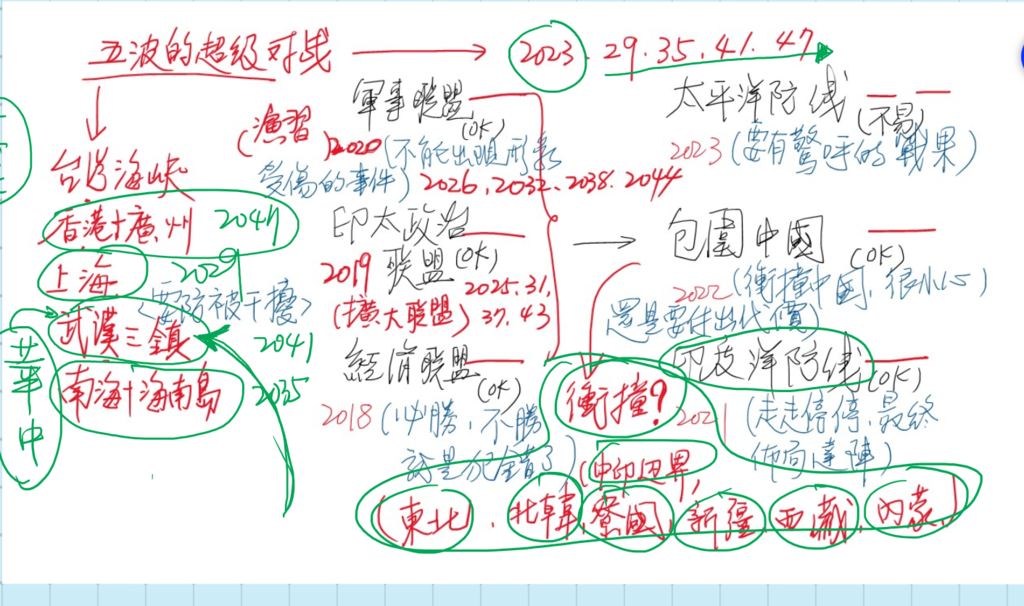 五波的超级对战 → 2023.29.35.41.47
台湾海峡
香港+廣州 2047
上海 2029
<要防被干擾>
武漢三鎮 2041
南海+海南島 2035
華中
軍事联盟 (OK)
(演習) 2020 (不能出現形象
受傷的事件) 2026、2032、2038、2044
印太政治
联盟 (OK)
2019 2025.31.
(擴大联盟) 37.43
經濟联盟 (OK)
2018 (必勝,不勝
就是犯錯了)
太平洋防线 (不易)
2023 (要有驚呼的戰果)
包圍中國 (OK)
2022 (衝撞中國,很小心
還是要付出代價)
印度洋防线 (OK)
2021 (走走停停,最終
佈局達陣)
衝撞?
(中印边界,
(東北、北韓、寮國、新疆、西藏、內蒙)